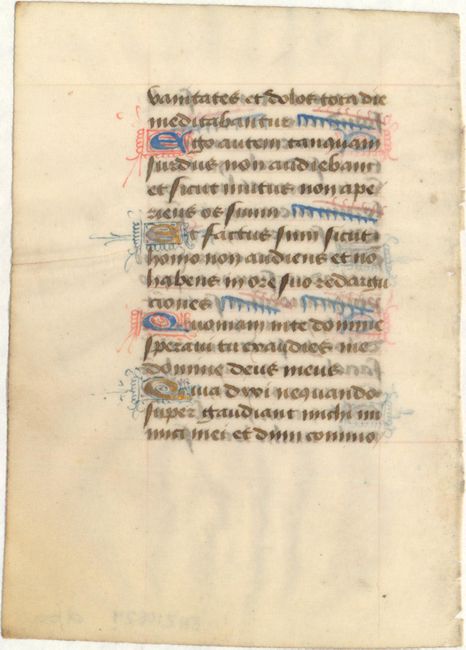 vanitates et dolos tota die
meditabantur
Ego autem tanquam
surdus non audiebam
et sicut mutus non ape
riens os suum
Et factus sum sicut
homo non audiens et no
habens in ore suo redargu
tiones
Quoniam in te domine
speraui tu exaudies me
domine deus meus
Quia dixi nequando
super gaudiant michi ini
mici mei et dum commo